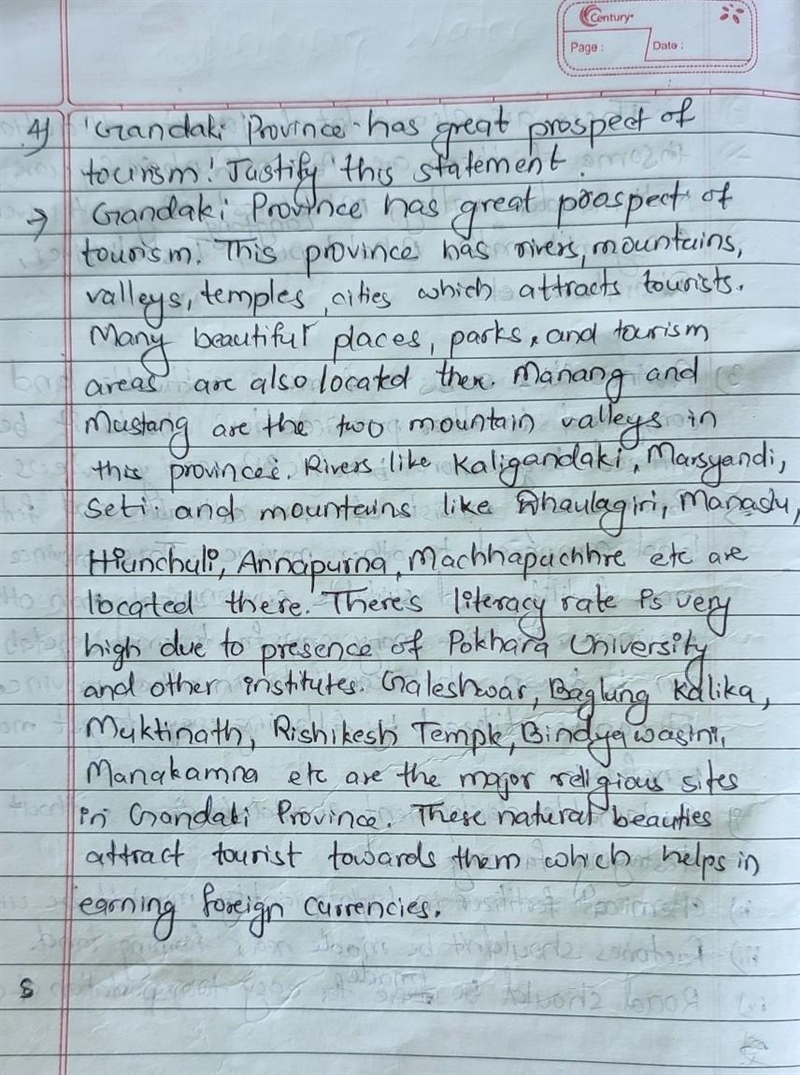 Century
Page :
Date :
4) 'Gandaki Province has great prospect of
tourism! Justify this statement.
→ Gandaki Province has great prospect of
tourism. This province has rivers, mountains,
valleys, temples, cities which attracts tourists.
Many beautiful places, parks, and tourism
areas are also located there. Manang and
Mustang are the two mountain valleys in
this provinces. Rivers like Kaligandaki, Marsyandi,
Seti and mountains like Dhaulagiri, Manaslu,
Hiunchuli, Annapurna, Machhapuchhre etc are
located there. There's literacy rate is very
high due to presence of Pokhara University
and other institutes. Galeshwar, Baglung Kalika,
Muktinath, Rishikesh Temple, Bindyawasini,
Manakamna etc are the major religious sites
in Gandaki Province. These natural beauties
attract tourist towards them which helps in
earning foreign currencies.